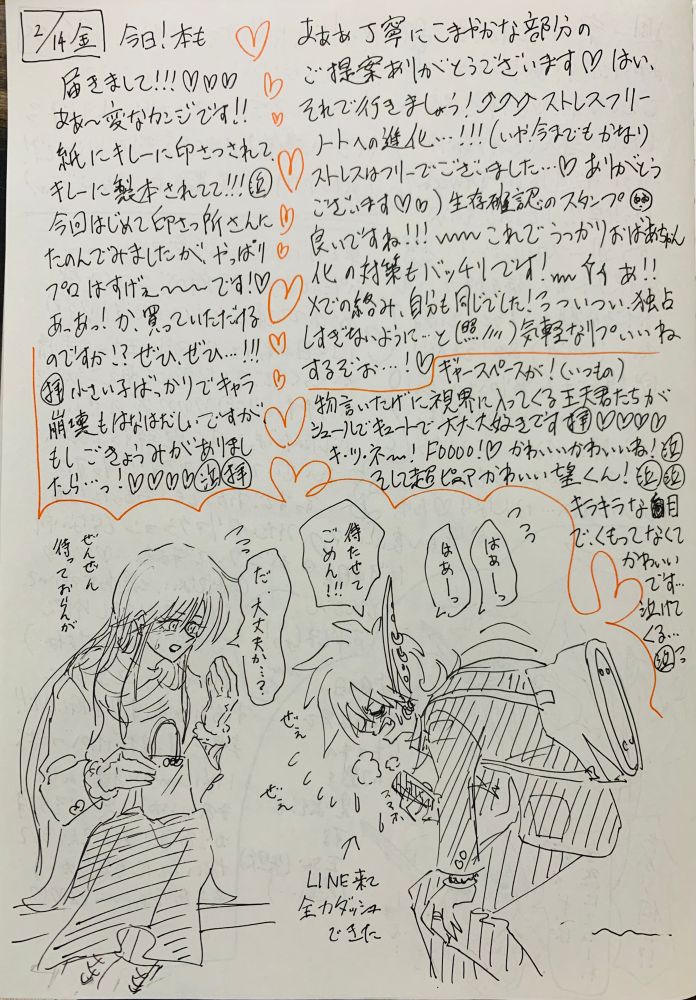 2/14 金
今日!本も
届きまして!!!♡♡♡
ああ〜変なカンジです!!
紙にキレーに印さつされて、
キレーに製本されてて!!!泣
今回はじめて印さつ所さんに
たのんでみましたが、やっぱり
プロはすげぇ〜〜〜です!♡
あっあっ!か、買っていただける
のですか!?ぜひ、ぜひ…!!!
拝 小さい子ばっかりでキャラ
崩壊もはなはだしいですが
もしごきょうみがありまし
たら…っ!♡♡♡♡泣拝
あぁぁ丁寧にこまやかな部分の
ご提案ありがとうございます♡はい、
それで行きましょう!⤴⤴⤴ストレスフリー
ノートへの進化…!!!(いや今までもかなり
ストレスはフリーでございました…♡ありがとう
ございます♡♡)生存確認のスタンプ
良いですね!!!〜〜これでうっかりおばあちゃん
化の対策もバッチリです!〜 あ!!
Xでの絡み、自分も同じでした!つい、独占
しすぎないように…と(照///)気軽なリプいいね
するぞぉ…!♡
ギャースペースが!(いつもの)
物言いたげに視界に入ってくる王天君たちが
シュールでキュートで大大大好きです拝♡♡♡♡
キ・ツ・ネ〜!FOOOO!♡かわいいかわいいね!泣
そして超ピュアかわいい望くん!泣泣
キラキラな目
で、くもってなくて
かわいい
です…
泣けて
くる…
泣っ
ぜんぜん
待っておらんが
だ、大丈夫か…?
待たせて
ごめん!!!
はぁーっ
はぁーっ
ぜぇ
ぜぇ
スマホ
↑
LINE来て
全力ダッシュ
できた